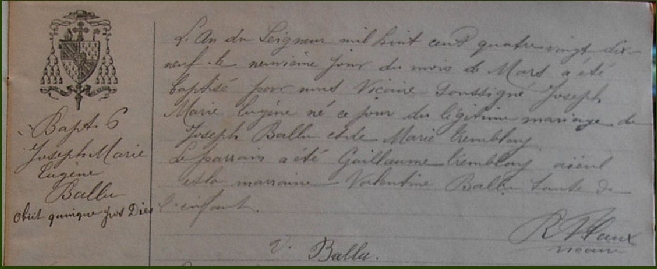 L'An du Seigneur mil huit cent quatre vingt dix
neuf le neuvième jour du mois de Mars a été
baptisé par nous Vicaire soussigné Joseph
Marie Eugène né ce jour du légitime mariage de
Joseph Ballu et de Marie Tremblay
Le parrain a été Guillaume Tremblay aïeul
et la marraine Valentine Ballu tante de
l'enfant.
Vicaire
V. Ballu.
Bapt. 6
Joseph Marie
Eugène
Ballu
obiit quinque post Dies